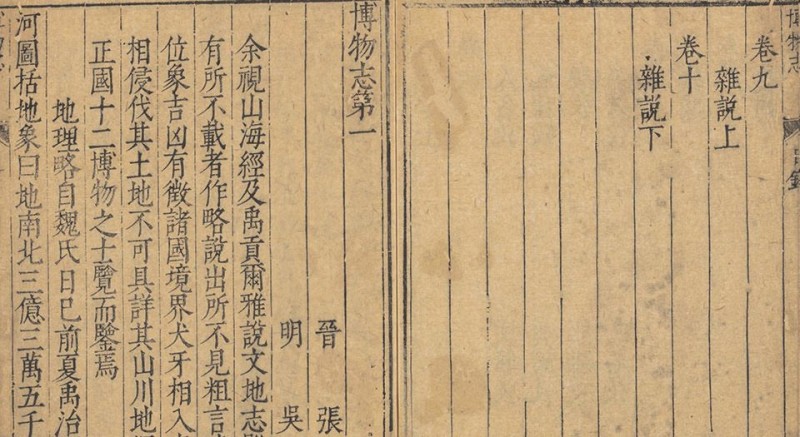 博物志
卷九
雜説上
卷十
雜説下
博物志第一
晉 張
明 吳
余視山海經及禹貢爾雅說文地志
有所不載者作略說出所不見粗言
位象吉凶有徵諸國境界犬牙相入
相侵伐其土地不可具詳其山川地
正國十二博物之士覽而鑒焉
地理略自魏氏日已前夏禹治
河圖括地象曰地南北三億三萬五千